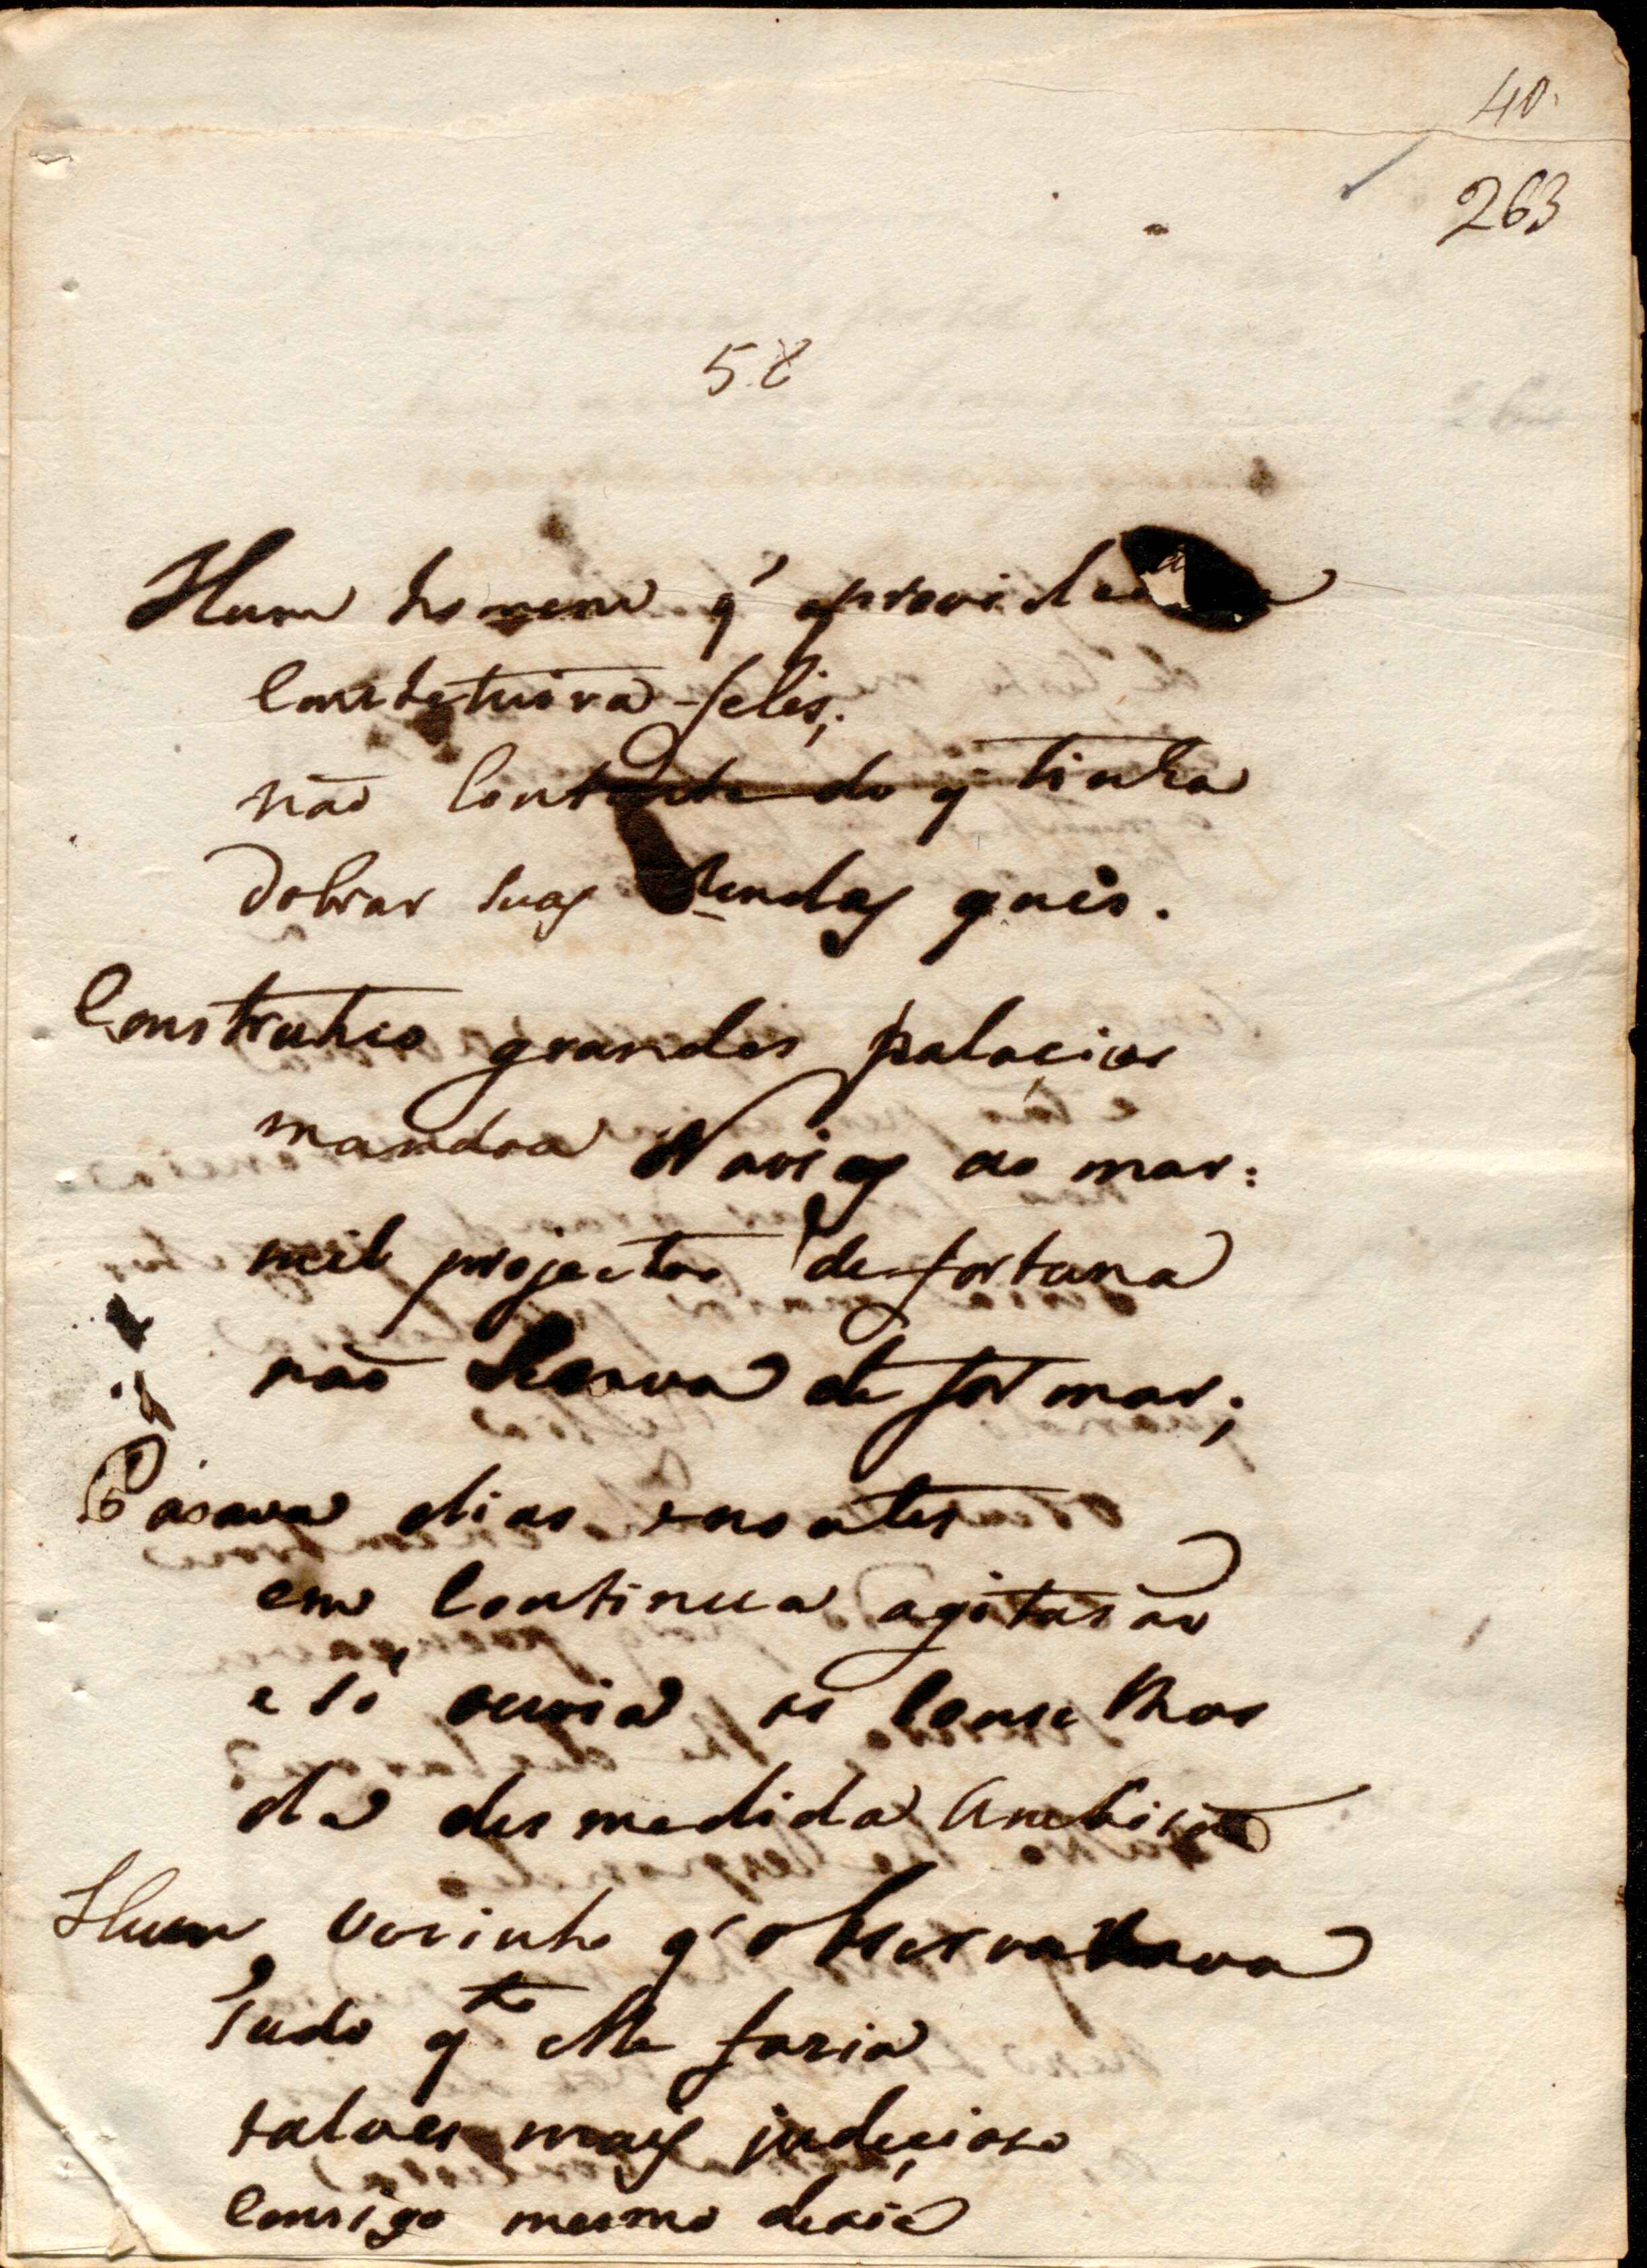 40
263
58
Hum homem q' aprovide
Constetuira felis;
não Contente do q tinha
dobrar suas Rendas quis.
Construhio grandes palacios
mandou Navios ao mar:
mil projectos de fortuna
não de formar;
Pasava dias e noutes
em Continua agitasão
e só ouvia os Conselhos
da desmedida Ambisão
Hum vezinho q' observava
Tudo q.to elle fazia
talves mais judiçioso
Consigo mesmo dezia